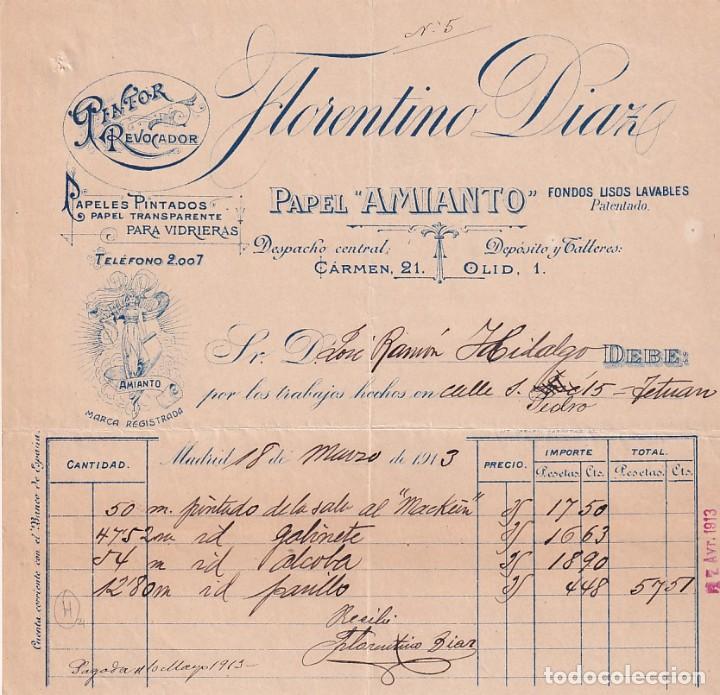 Nº 5
PINTOR
REVOCADOR
Florentino Diaz
PAPELES PINTADOS
PAPEL TRANSPARENTE
PARA VIDRIERAS
TELÉFONO 2.007
PAPEL "AMIANTO" FONDOS LISOS LAVABLES
Patentado.
Despacho central: Depósito y Talleres:
CÁRMEN, 21. OLID, 1.
AMIANTO
MARCA REGISTRADA
Sr. D. José Ramón Hidalgo DEBE:
por los trabajos hechos en calle S. 15 - Tetuan
Pedro
Cuenta corriente con el Banco de España.
CANTIDAD. Madrid 18 de Marzo de 1913 PRECIO. IMPORTE TOTAL.
Pesetas. Cts. Pesetas. Cts.
50 m. pintado de la sala al "Mackein" 35 17 50
47 52 m id gabinete 35 16 63
54 m id alcoba 35 18 90
12'80 m id pasillo 35 4 48 57 51
Recibi
Florentino Diaz
H
Pagada 10 Mayo 1913
7 AVR. 1913
todocoleccion.net